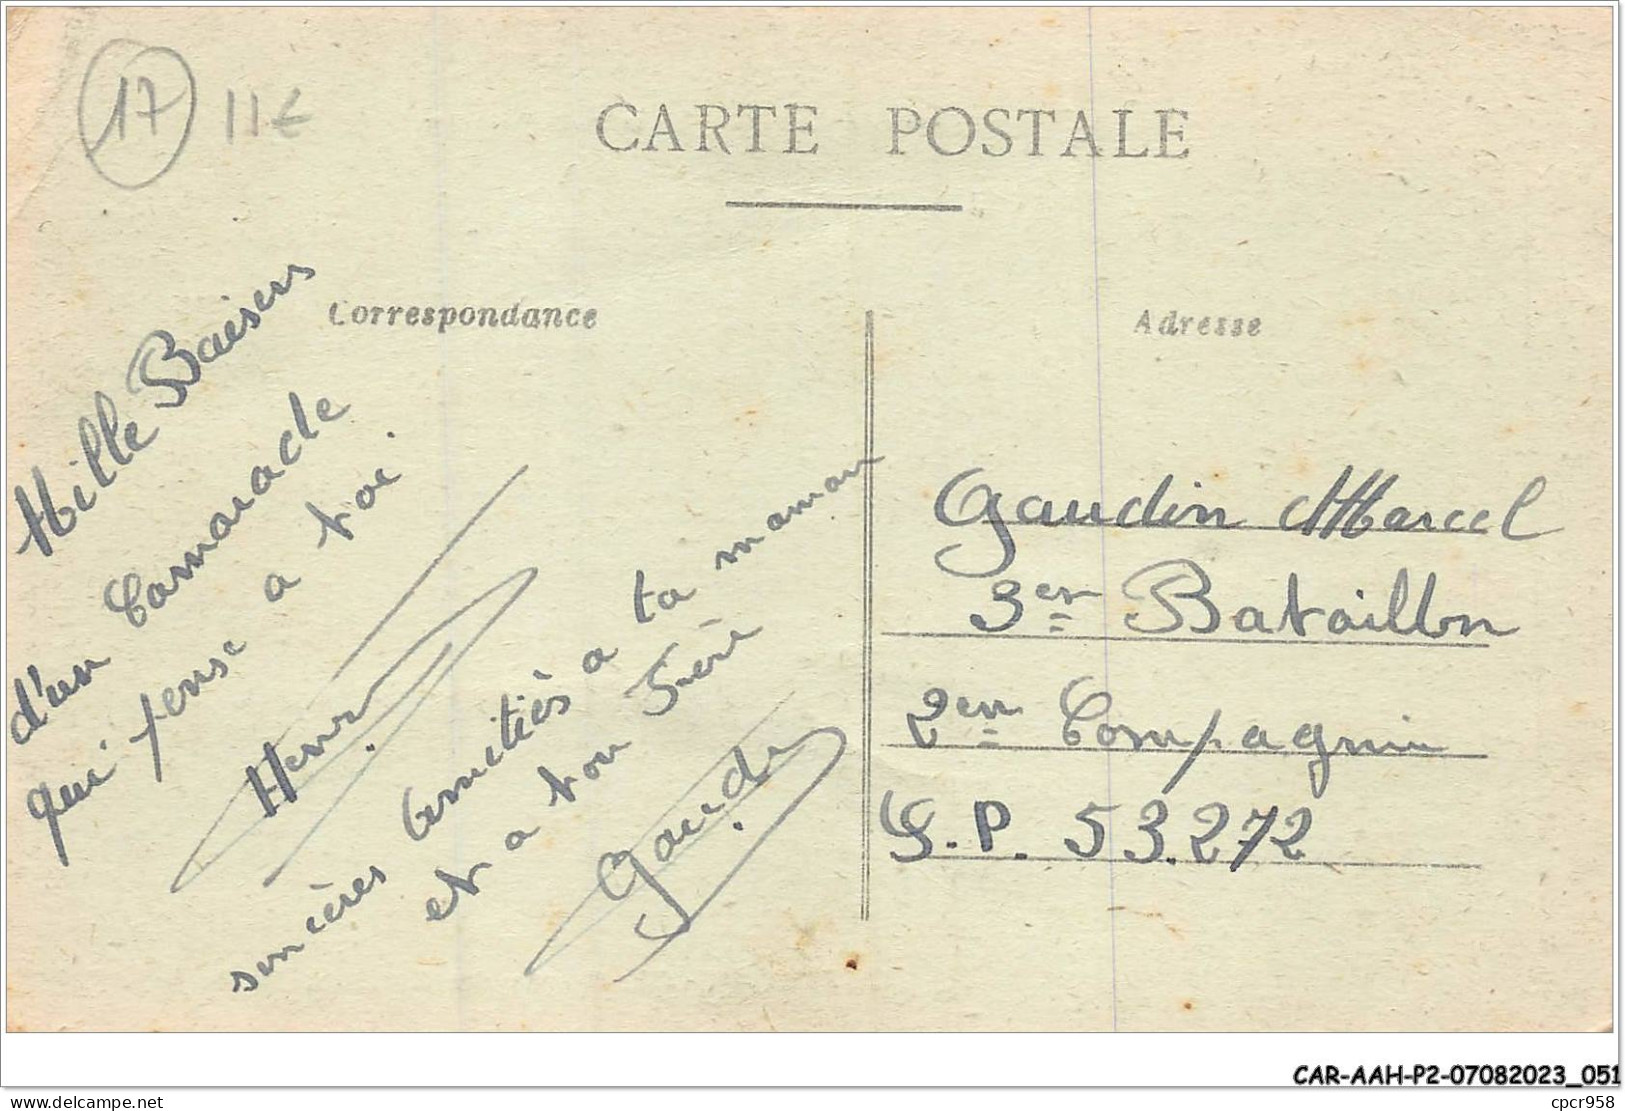 17 11€
CARTE POSTALE
Correspondance
Adresse
Mille Baisers
d'un Camarade
qui pense a toi
Henri
sincères Amitiès a ta maman
et a ton
Gaudin
Gaudin Marcel
3em Bataillon
2em Compagnie
S.P. 53.272
CAR-AAH-P2-07082023_051
delcampe.net
cpcr958